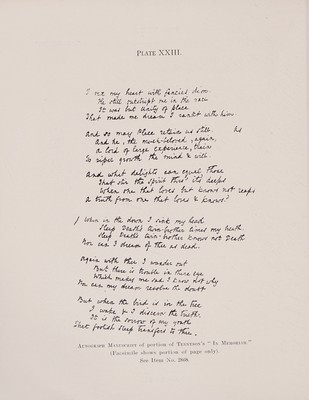 PLATE XXIII.
I vex my heart with fancies dim
He still outstript me in the race
It was but Unity of place
That made me dream I rank'd with him
And so may Place retain us still
And he, the much-beloved, again,
A lord of large experience, train
To riper growth the mind & will
And what delights can equal those
That stir the spirit thro' its deeps
When one that loves but knows not reaps
A truth from one that loves & knows?
When in the down I sink my head
Sleep Death's twin-brother times my breath
Sleep Death's twin-brother knows not Death
Nor can I dream of thee as dead.
Again with thee I wander out
But there is trouble in thine eye
Which makes me sad I know not why
Nor can my dream resolve the doubt
But when the bird is in the tree
I wake & I discern the truth
It is the sorrow of my youth
That foolish sleep transfers to thee.
AUTOGRAPH MANUSCRIPT OF PORTION OF TENNYSON'S "IN MEMORIAM."
(Facsimile shows portion of page only).
SEE ITEM No. 2868.